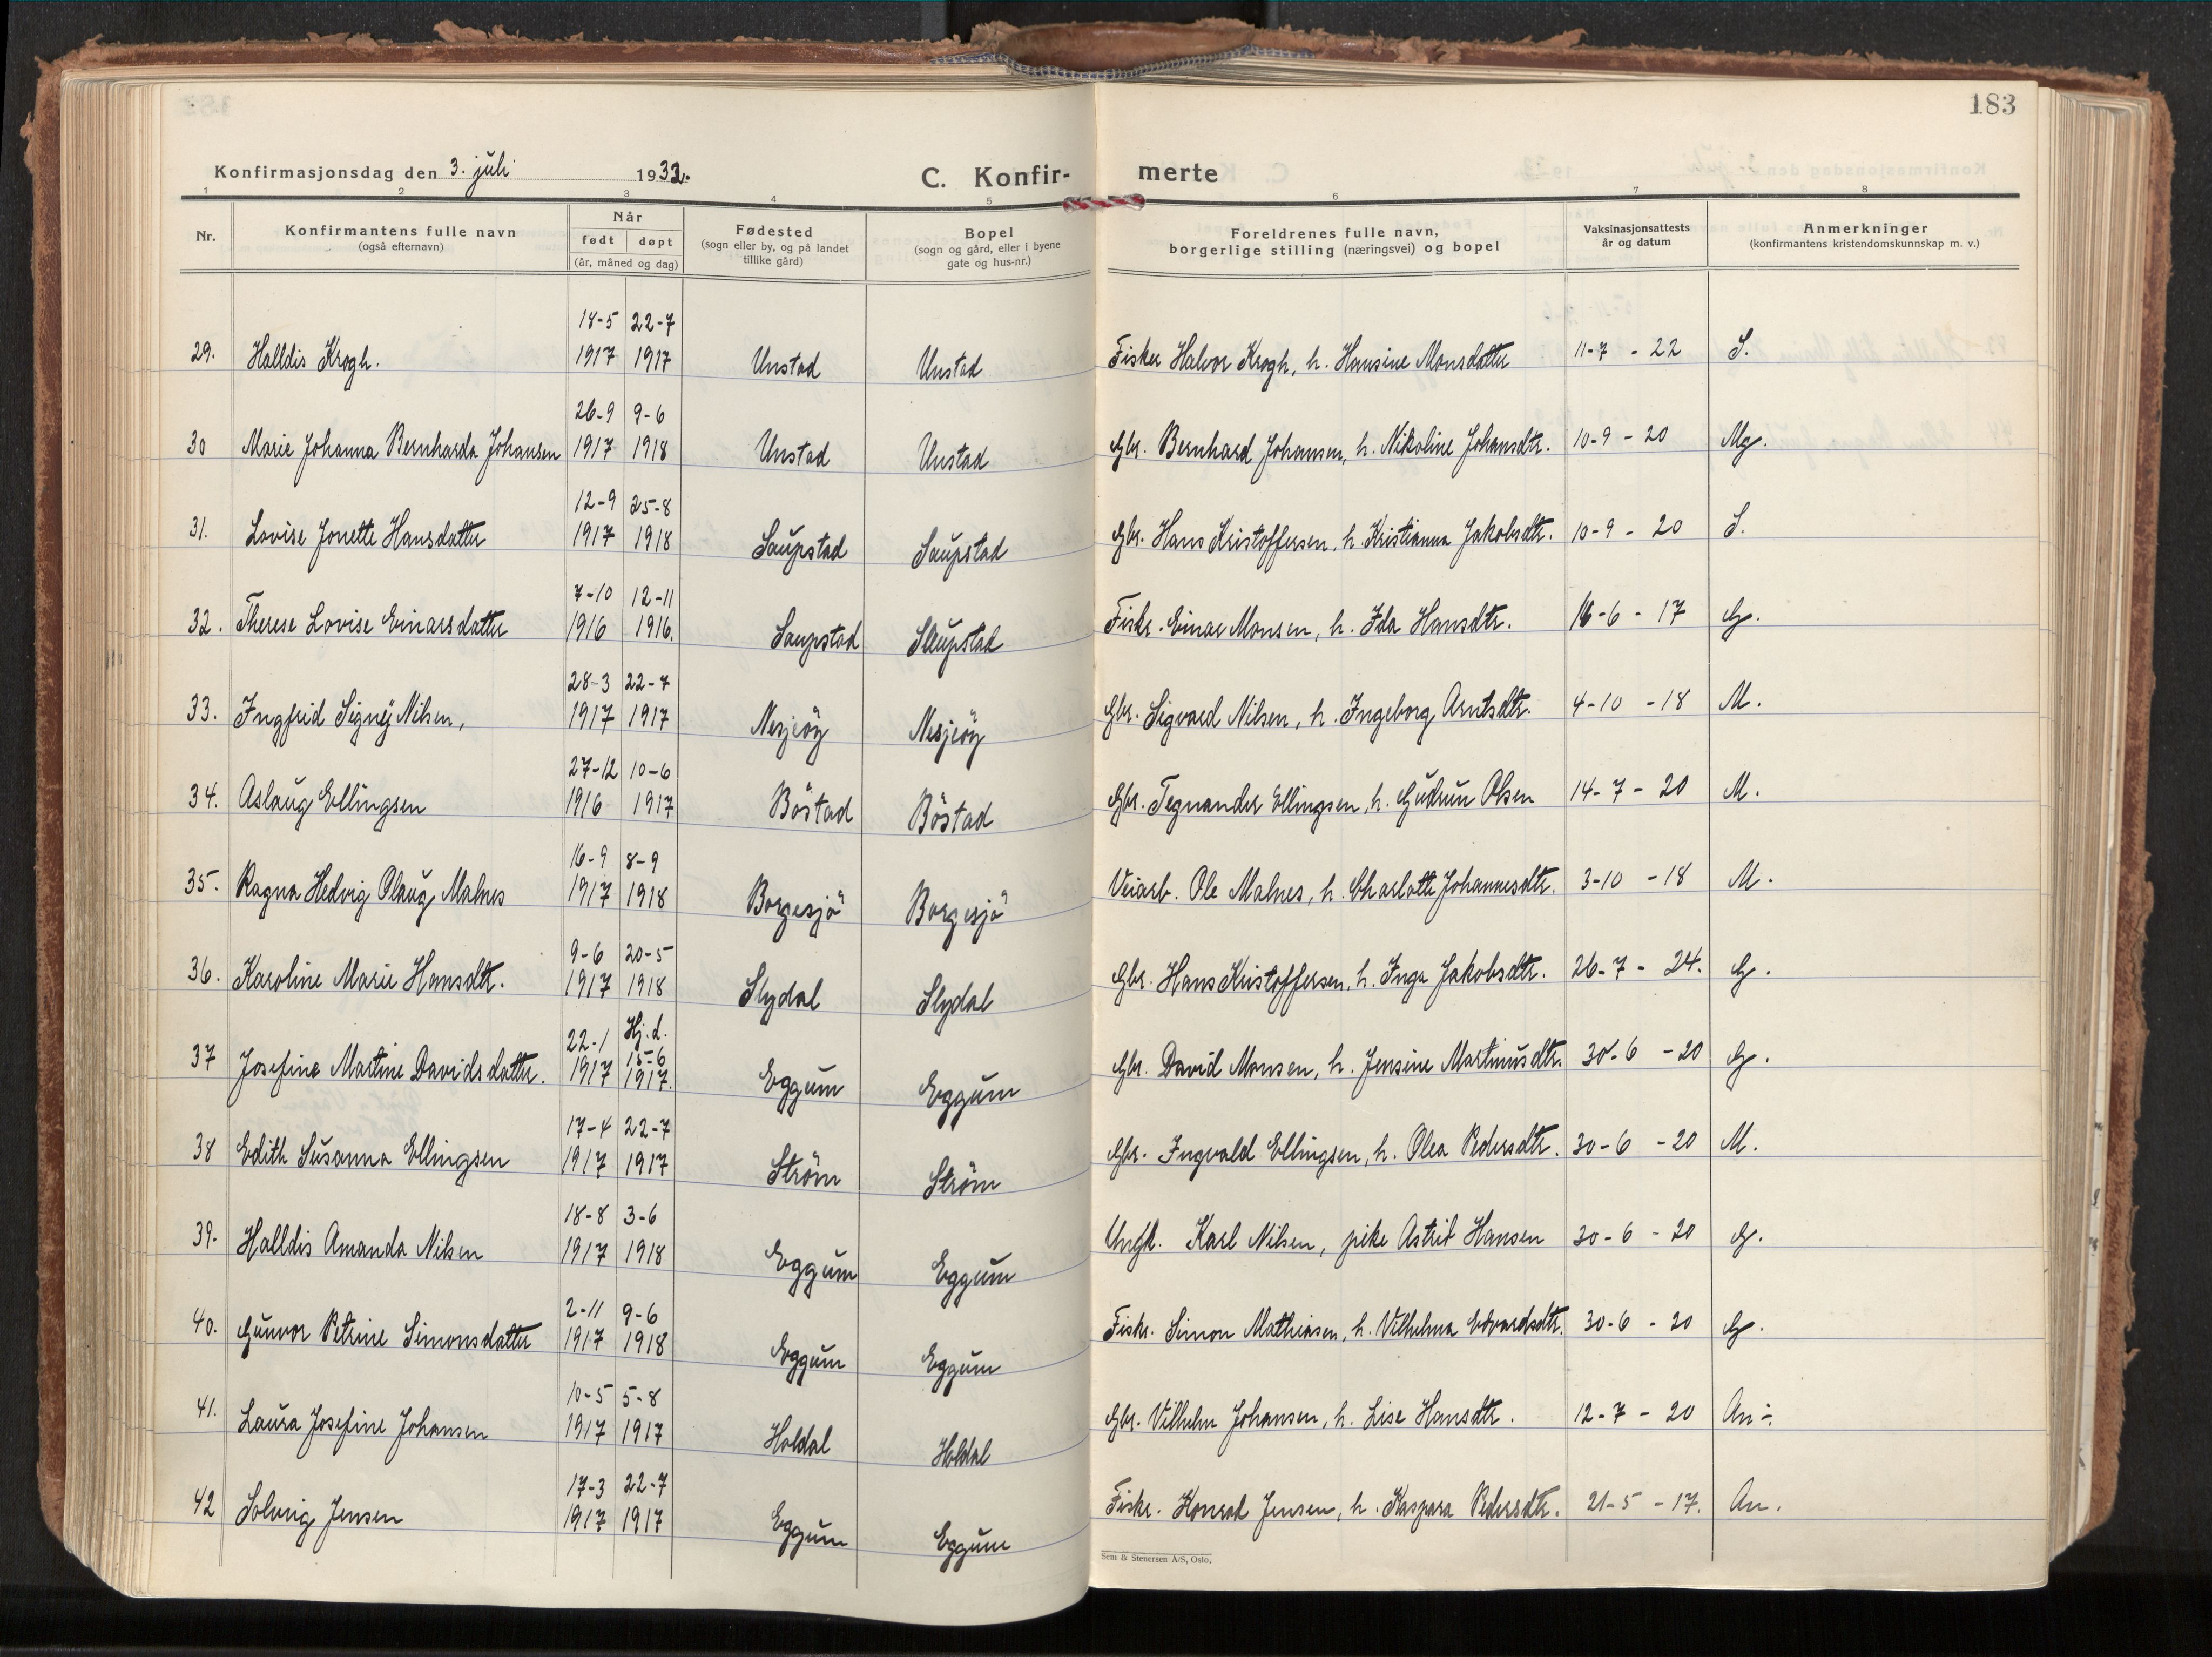 183
Konfirmasjonsdag den 3. juli 1932.
C. Konfirmerte
1 2 3 4 5 6 7 8
Nr. Konfirmantens fulle navn (også efternavn) Når født døpt (år, måned og dag) Fødested (sogn eller by, og på landet tillike gård) Bopel (sogn og gård, eller i byene gate og hus-nr.) Foreldrenes fulle navn, borgerlige stilling (næringsvei) og bopel Vaksinasjonsattests år og datum Anmerkninger (konfirmantens kristendomskunnskap m. v.)
18-5 22-7
29. Halldis Krogh. 1917 1917 Unstad Unstad Fisker Halvor Krogh, h. Hansine Monsdatter 11-7 - 22 S.
26-9 9-6
30 Marie Johanna Bernharda Johansen 1917 1918 Unstad Unstad Gbr. Bernhard Johansen, h. Nikoline Johansdtr. 10-9 - 20 Mg.
12-9 25-8
31. Lovise Jonette Hansdatter 1917 1918 Saupstad Saupstad Gbr. Hans Kristoffersen, h. Kristianna Jakobsdtr. 10-9 - 20 S.
7-10 12-11
32. Therese Lovise Einarsdatter 1916 1916. Saupstad Saupstad Fiskr. Einar Monsen, h. Ida Hansdtr. 16-6 - 17 G.
28-3 22-7
33. Ingfrid Signy Nilsen, 1917 1917 Nesjeöy Nesjeöy Gbr. Sigvard Nilsen, h. Ingeborg Arntsdtr. 4-10 - 18 M.
27-12 10-6
34. Aslaug Ellingsen 1916 1917 Böstad Böstad Gbr. Tegnander Ellingsen, h. Gudrun Olsen 14-7 - 20 M.
16-9 8-9
35. Ragna Hedvig Olaug Malnes 1917 1918 Borgesjö Borgesjö Veiarb. Ole Malnes, h. Charlotte Johannesdtr. 3-10 - 18 M.
9-6 20-5
36. Karoline Marie Hansdtr. 1917 1918 Slydal Slydal Gbr. Hans Kristoffersen, h. Inga Jakobsdtr. 26-7 - 24. G.
22-1 Hj.d. 15-6
37 Josefine Martine Davidsdatter. 1917 1917. Eggum Eggum Gbr. David Monsen, h. Jensine Martinusdtr. 30-6 - 20 G.
17-4 22-7
38 Edith Susanna Ellingsen 1917 1917 Ström Ström Gbr. Ingvald Ellingsen, h. Olea Pedersdtr. 30-6 - 20 M.
18-8 3-6
39. Halldis Amanda Nilsen 1917 1918 Eggum Eggum Ungk. Karl Nilsen, pike Astrid Hansen 30-6 - 20 G.
2-11 9-6
40. Gunvor Petrine Simonsdatter 1917 1918 Eggum Eggum Fiskr. Simon Mathiasen, h. Vilhelma Edvardsdtr. 30-6 - 20 G.
10-5 5-8
41. Laura Josefine Johansen 1917 1917 Holdal Holdal Gbr. Vilhelm Johansen, h. Lise Hansdtr. 12-7 - 20 An÷.
17-3 22-7
42 Solveig Jensen 1917 1917 Eggum Eggum Fiskr. Konrad Jensen, h. Kaspara Pedersdtr. 21-5 - 17. An.
Sem & Stenersen A/S, Oslo.